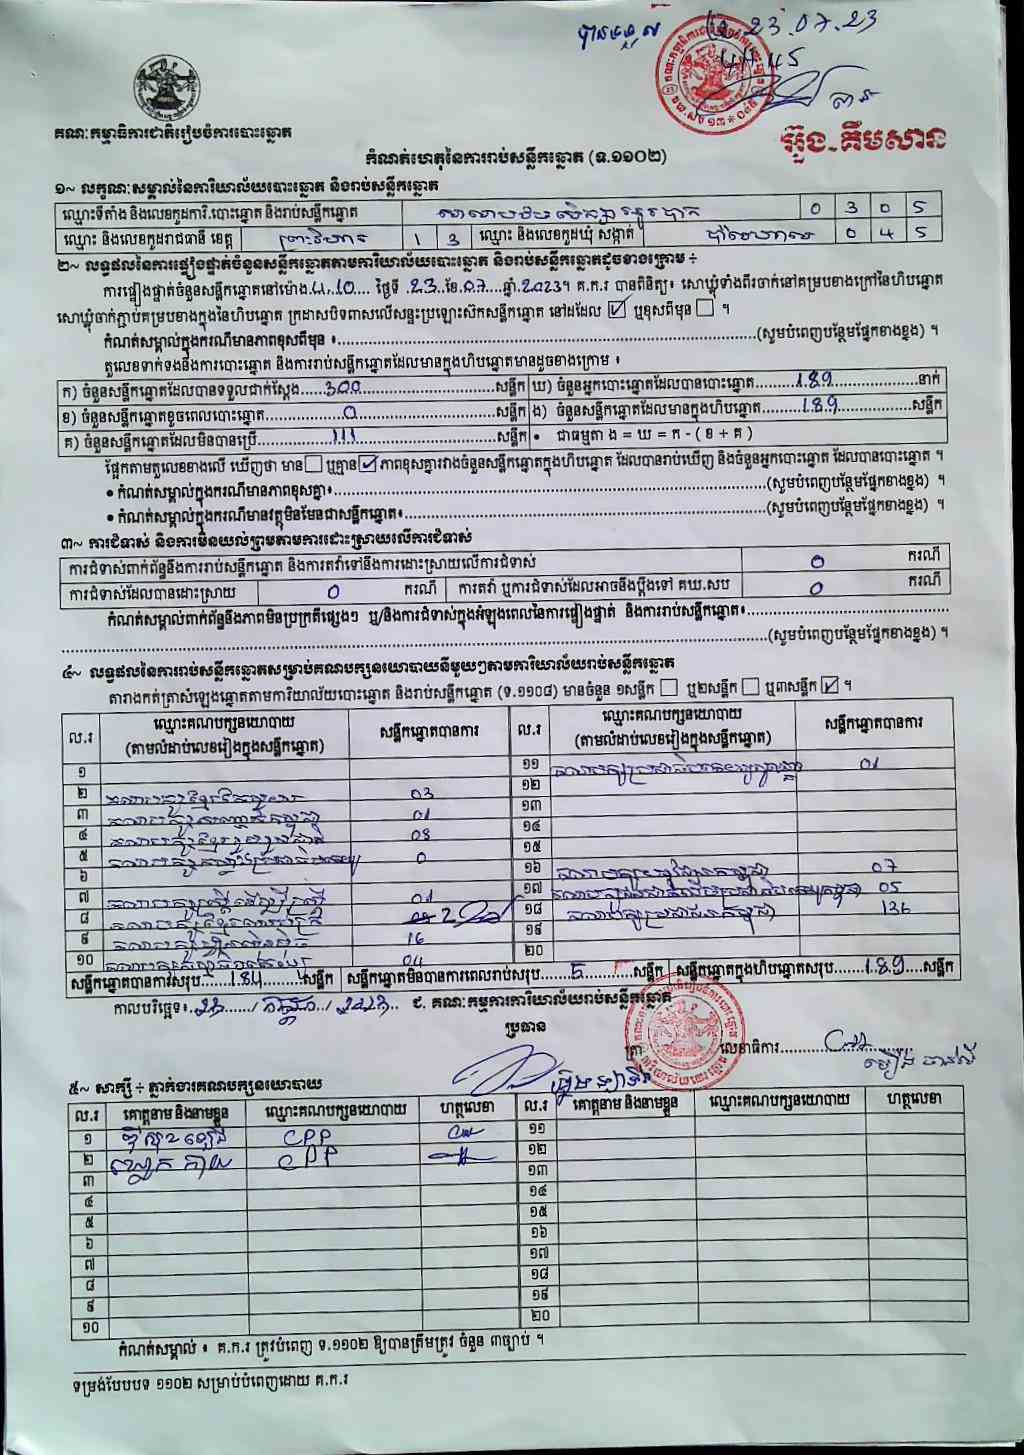 បានទទួល ថ្ងៃ 23.07.23
4H 45
គណៈកម្មាធិការជាតិរៀបចំការបោះឆ្នោត
អ៊ួង គឹមសាន
កំណត់ហេតុនៃការរាប់សន្លឹកឆ្នោត (ទ.១១០២)
១~ លក្ខណៈសម្គាល់នៃការិយាល័យបោះឆ្នោត និងរាប់សន្លឹកឆ្នោត
ឈ្មោះទីតាំង និងលេខកូដការិ.បោះឆ្នោត និងរាប់សន្លឹកឆ្នោត 0 3 0 5
ឈ្មោះ និងលេខកូដរាជធានី ខេត្ត ព្រះវិហារ 1 3 ឈ្មោះ និងលេខកូដឃុំ សង្កាត់ 0 4 5
២~ លទ្ធផលនៃការផ្ទៀងផ្ទាត់ចំនួនសន្លឹកឆ្នោតតាមការិយាល័យបោះឆ្នោត និងរាប់សន្លឹកឆ្នោតដូចខាងក្រោម ÷
ការផ្ទៀងផ្ទាត់ចំនួនសន្លឹកឆ្នោតនៅម៉ោង 4.10 ថ្ងៃទី 23 ខែ 07 ឆ្នាំ 2023។ គ.ក.រ បានពិនិត្យ៖ សោឃ្លុំទាំងពីរចាក់នៅគម្របខាងក្រៅនៃហិបឆ្នោត
សោឃ្លុំចាក់ភ្ជាប់គម្របខាងក្នុងនៃហិបឆ្នោត ក្រដាសបិទពាសលើសន្ទះប្រឡោះស៊កសន្លឹកឆ្នោត នៅដដែល ☑ ឬខុសពីមុន ☐ ។
កំណត់សម្គាល់ក្នុងករណីមានភាពខុសពីមុន ៖ (សូមបំពេញបន្ថែមផ្នែកខាងខ្នង) ។
តួលេខទាក់ទងនឹងការបោះឆ្នោត និងការរាប់សន្លឹកឆ្នោតដែលមានក្នុងហិបឆ្នោតមានដូចខាងក្រោម ៖
ក) ចំនួនសន្លឹកឆ្នោតដែលបានទទួលជាក់ស្តែង 300 សន្លឹក ឃ) ចំនួនអ្នកបោះឆ្នោតដែលបានបោះឆ្នោត 189 នាក់
ខ) ចំនួនសន្លឹកឆ្នោតខូចពេលបោះឆ្នោត 0 សន្លឹក ង) ចំនួនសន្លឹកឆ្នោតដែលមានក្នុងហិបឆ្នោត 189 សន្លឹក
គ) ចំនួនសន្លឹកឆ្នោតដែលមិនបានប្រើ 111 សន្លឹក • ជាធម្មតា ង = ឃ = ក - ( ខ + គ )
ផ្អែកតាមតួលេខខាងលើ ឃើញថា មាន ☐ ឬគ្មាន ☑ ភាពខុសគ្នារវាងចំនួនសន្លឹកឆ្នោតក្នុងហិបឆ្នោត ដែលបានរាប់ឃើញ និងចំនួនអ្នកបោះឆ្នោត ដែលបានបោះឆ្នោត ។
• កំណត់សម្គាល់ក្នុងករណីមានភាពខុសគ្នា៖ (សូមបំពេញបន្ថែមផ្នែកខាងខ្នង) ។
• កំណត់សម្គាល់ក្នុងករណីមានវត្ថុមិនមែនជាសន្លឹកឆ្នោត៖ (សូមបំពេញបន្ថែមផ្នែកខាងខ្នង) ។
៣~ ការជំទាស់ និងការមិនយល់ព្រមតាមការដោះស្រាយលើការជំទាស់
ការជំទាស់ពាក់ព័ន្ធនឹងការរាប់សន្លឹកឆ្នោត និងការតវ៉ាទៅនឹងការដោះស្រាយលើការជំទាស់ 0 ករណី
ការជំទាស់ដែលបានដោះស្រាយ 0 ករណី ការតវ៉ា ឬការជំទាស់ដែលអាចនឹងប្តឹងទៅ គឃ.សប 0 ករណី
កំណត់សម្គាល់ពាក់ព័ន្ធនឹងភាពមិនប្រក្រតីផ្សេងៗ ឬ/និងការជំទាស់ក្នុងអំឡុងពេលនៃការផ្ទៀងផ្ទាត់ និងការរាប់សន្លឹកឆ្នោត៖
(សូមបំពេញបន្ថែមផ្នែកខាងខ្នង) ។
៤~ លទ្ធផលនៃការរាប់សន្លឹកឆ្នោតសម្រាប់គណបក្សនយោបាយនីមួយៗតាមការិយាល័យរាប់សន្លឹកឆ្នោត
តារាងកត់ត្រាសំឡេងឆ្នោតតាមការិយាល័យបោះឆ្នោត និងរាប់សន្លឹកឆ្នោត (ទ.១១០៨) មានចំនួន ១សន្លឹក ☐ ឬ២សន្លឹក ☐ ឬ៣សន្លឹក ☑ ។
ល.រ ឈ្មោះគណបក្សនយោបាយ (តាមលំដាប់លេខរៀងក្នុងសន្លឹកឆ្នោត) សន្លឹកឆ្នោតបានការ ល.រ ឈ្មោះគណបក្សនយោបាយ (តាមលំដាប់លេខរៀងក្នុងសន្លឹកឆ្នោត) សន្លឹកឆ្នោតបានការ
១ ១១ 01
២ 03 ១២
៣ 01 ១៣
៤ 08 ១៤
៥ 0 ១៥
៦ ១៦ 07
៧ 01 ១៧ 05
៨ 2 ១៨ 136
៩ 16 ១៩
១០ 04 ២០
សន្លឹកឆ្នោតបានការសរុប 184 សន្លឹក សន្លឹកឆ្នោតមិនបានការពេលរាប់សរុប 5 សន្លឹក សន្លឹកឆ្នោតក្នុងហិបឆ្នោតសរុប 189 សន្លឹក
កាលបរិច្ឆេទ៖ 23 / កក្កដា / 2023 ជ. គណៈកម្មការការិយាល័យរាប់សន្លឹកឆ្នោត
ប្រធាន
ត្រា លេខាធិការ
៥~ សាក្សី ÷ ភ្នាក់ងារគណបក្សនយោបាយ
ល.រ គោត្តនាម និងនាមខ្លួន ឈ្មោះគណបក្សនយោបាយ ហត្ថលេខា ល.រ គោត្តនាម និងនាមខ្លួន ឈ្មោះគណបក្សនយោបាយ ហត្ថលេខា
១ CPP ១១
២ CPP ១២
៣ ១៣
៤ ១៤
៥ ១៥
៦ ១៦
៧ ១៧
៨ ១៨
៩ ១៩
១០ ២០
កំណត់សម្គាល់ ៖ គ.ក.រ ត្រូវបំពេញ ទ.១១០២ ឱ្យបានត្រឹមត្រូវ ចំនួន ៣ច្បាប់ ។
ទម្រង់បែបបទ ១១០២ សម្រាប់បំពេញដោយ គ.ក.រ